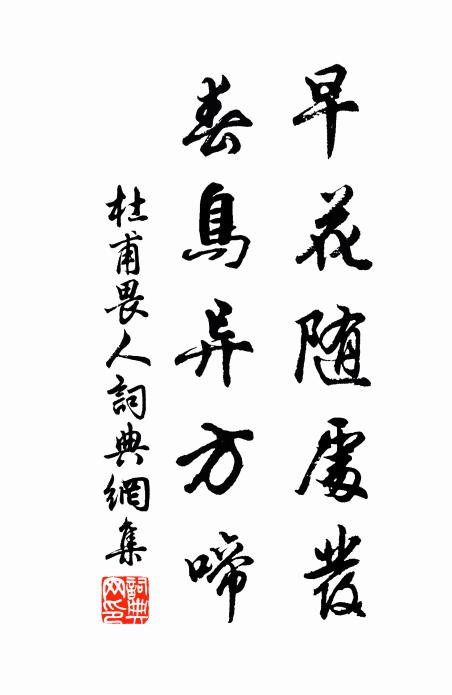 早花随處發
春鳥异方啼
杜甫畏人詞典網集
詞典網印